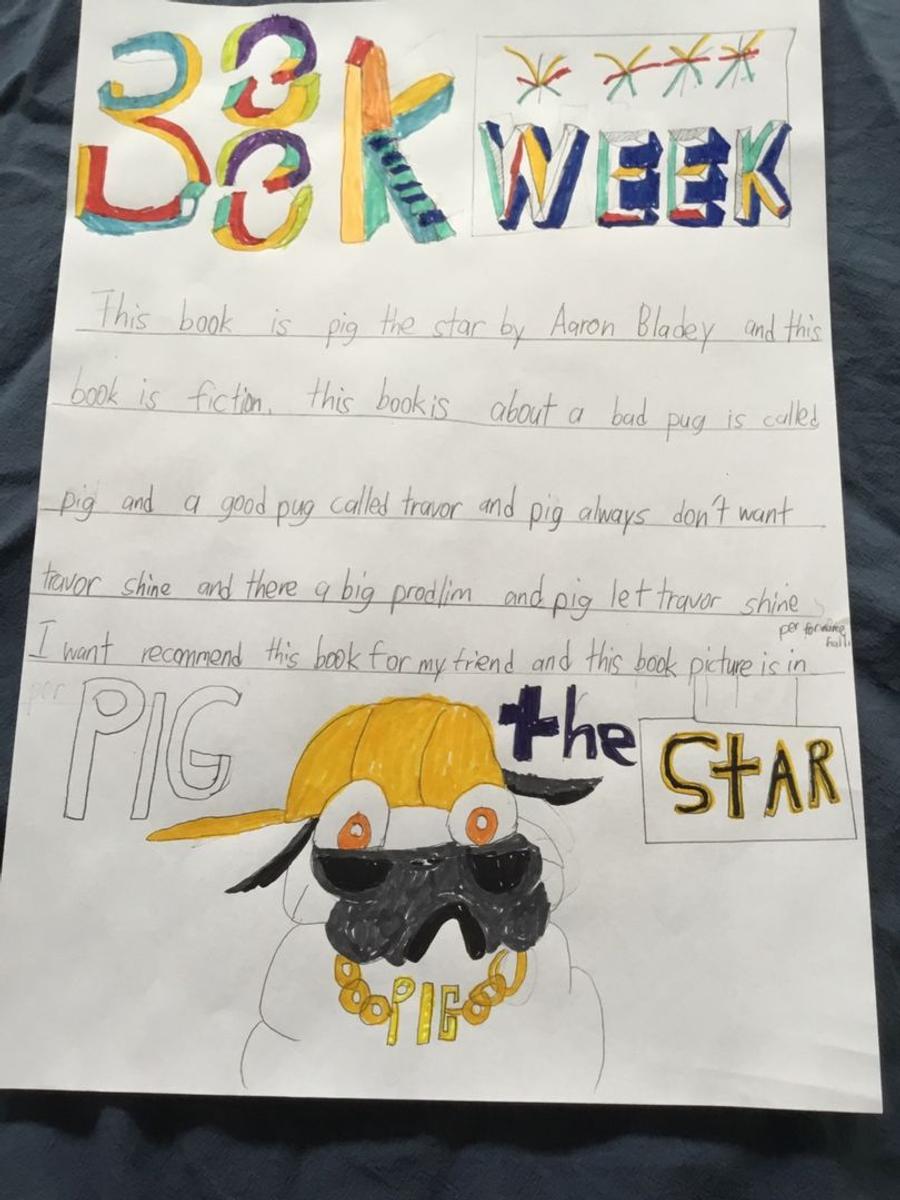 BOOK WEEK
This book is pig the star by Aaron Bladey and this
book is fiction. this book is about a bad pug is called
pig and a good pug called travor and pig always don't want
travor shine and there a big prodlim and pig let travor shine
I want recommend this book for my friend and this book picture is in
performing hall
PIG the STAR
PIG